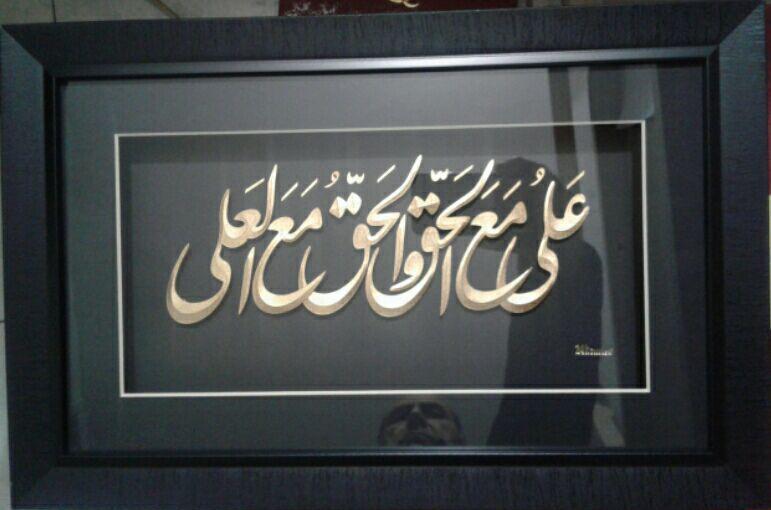 عَلیُ مَعَ الحَقِّ وَالحَقُّ مَعَ العَلی